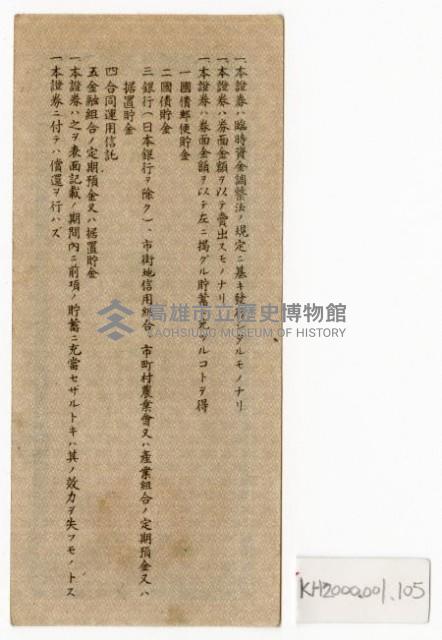 一本證券ハ臨時資金調整法ノ規定ニ基キ發行スルモノナリ
一本證券ハ券面金額ヲ以テ賣出スモノナリ
一本證券ハ券面金額ヲ以テ左ニ揭グル貯蓄ニ充ツルコトヲ得
一國債郵便貯金
二國債貯金
三銀行(日本銀行ヲ除ク)、市街地信用組合、市町村農業會又ハ產業組合ノ定期預金又ハ
據置貯金
四合同運用信託
五金融組合ノ定期預金又ハ据置貯金
一本證券ハ之ヲ表面記載ノ期間內ニ前項ノ貯蓄ニ充當セザルトキハ其ノ效力ヲ失フモノトス
一本證券ニ付テハ償還ヲ行ハズ
高雄市立歷史博物館
KAOHSIUNG MUSEUM OF HISTORY
KH2000.001.105